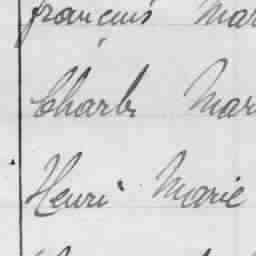 françois Mar
Charles Mar
Henri Marie